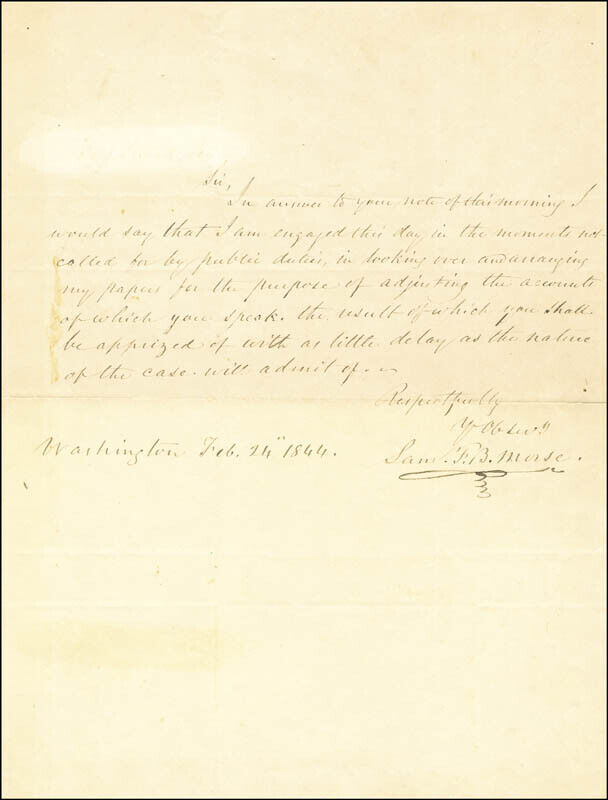 Sir,
In answer to your note of this morning I
would say that I am engaged this day, in the moments not
called for by public duties, in looking over and arranging
my papers for the purpose of adjusting the accounts
of which you speak. the result of which you shall
be apprized of with as little delay as the nature
of the case will admit of.
Respectfully
Yr Ob Servt
Washington Feb. 24" 1844.
Saml. F. B. Morse.